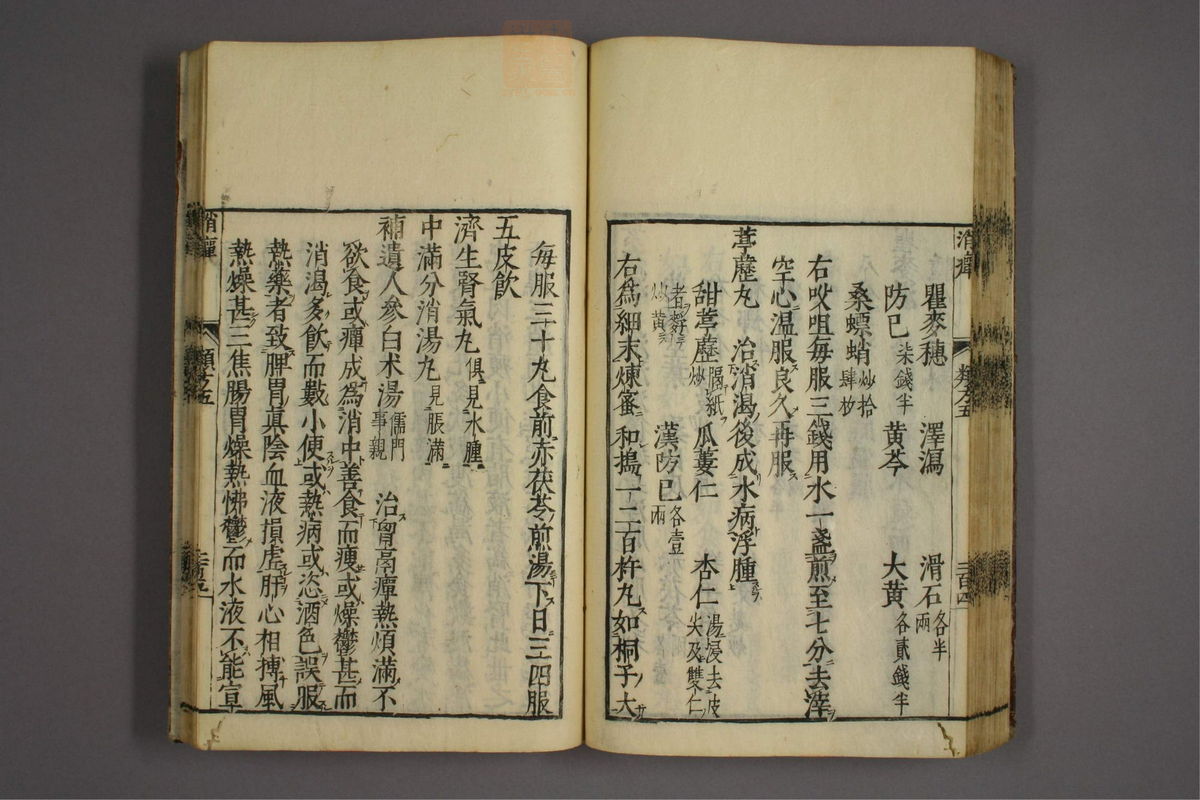 消癉 類方五 二百四
瞿麥穗 澤瀉 滑石各半兩
防已柒錢半 黄芩 大黄各貳錢半
桑螵蛸炒拾肆枚
右㕮咀每服三錢用水一盞煎至七分去滓
空心温服良久再服
葶藶丸 治消渴後成水病浮腫
甜葶藶隔紙炒 瓜蔞仁 杏仁湯浸去皮尖及雙仁
者麩炒黄 漢防已各壹兩
右爲細末煉蜜和搗一二百杵丸如桐子大
每服三十丸食前赤茯苓煎湯下日三四服
五皮飲
濟生腎氣丸俱見水腫
中滿分消湯丸見脹滿
補遺人參白术湯儒門事親 治胃鬲癉熱煩滿不
欲食或癉成爲消中善食而瘦或燥鬱甚而
消渴多飲而數小便或熱病或恣酒色誤服
熱藥者致脾胃眞陰血液損虚肝心相搏風
熱燥甚三焦腸胃燥熱怫鬱而水液不能宣
消癉 類方五